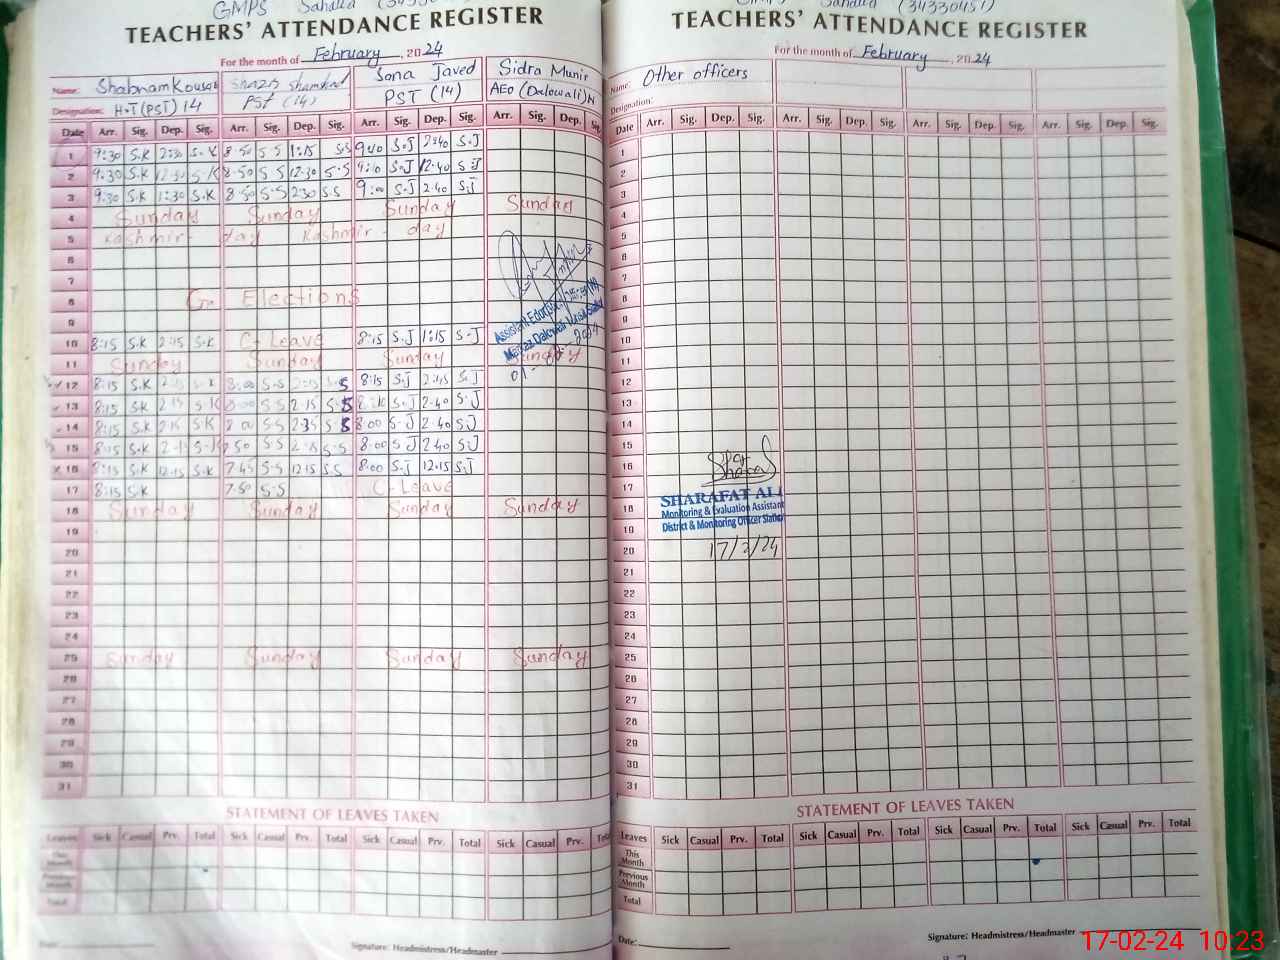 GMPS Sahalla
TEACHERS' ATTENDANCE REGISTER
For the month of February, 2024
Name: Shabnam Kousar Shazia Shamshad Sona Javed Sidra Munir
Designation: H.T (PST) 14 PST (14) PST (14) AEO (Dalowali)
Date Arr. Sig. Dep. Sig. Arr. Sig. Dep. Sig. Arr. Sig. Dep. Sig. Arr. Sig. Dep. Sig.
1 9:30 S.K 2:30 S.K 8:50 S.S 1:15 S.S S.J 2:40 S.J
2 9:30 S.K 12:30 S.K 8:50 S.S 12:30 S.S S.J 12:40 S.J
3 9:30 S.K 1:30 S.K 8:50 S.S 2:30 S.S 9:00 S.J 2:40 S.J
4 Sunday Sunday Sunday Sunday
5 Kashmir-day Kashmir-day
6
7
8 G. Elections
9
10 8:15 S.K 2:15 S.K C-Leave 8:15 S.J 1:15 S.J
11 Sunday Sunday Sunday Sunday
12 8:15 S.K S.K 8:00 S.S 2:15 S.S 8:15 S.J 2:45 S.J
13 8:15 S.K 2:15 S.K 8:00 S.S 2:15 S.S S.J 2:40 S.J
14 8:15 S.K 2:15 S.K 8:00 S.S 2:35 S.S 8:00 S.J 2:40 S.J
15 8:15 S.K S.K 7:50 S.S S.S 8:00 S.J 2:40 S.J
16 8:15 S.K 12:15 S.K 7:45 S.S 12:15 S.S 8:00 S.J 12:15 S.J
17 8:15 S.K 7:50 S.S C-Leave
18 Sunday Sunday Sunday Sunday
19
20
21
22
23
24
25 Sunday Sunday Sunday Sunday
26
27
28
29
30
31
Assistant Education
Markaz Dalowali
STATEMENT OF LEAVES TAKEN
Leaves Sick Casual Prv. Total Sick Casual Prv. Total Sick Casual Prv. Total Sick Casual Prv. Total
This Month
Previous Month
Total
Date:
Signature: Headmistress/Headmaster
GMPS Sahalla (34330451)
TEACHERS' ATTENDANCE REGISTER
For the month of February, 2024
Name: Other officers
Designation:
Date Arr. Sig. Dep. Sig. Arr. Sig. Dep. Sig. Arr. Sig. Dep. Sig. Arr. Sig. Dep. Sig.
1
2
3
4
5
6
7
8
9
10
11
12
13
14
15
16
17
18
19
20
21
22
23
24
25
26
27
28
29
30
31
SHARAFAT ALI
Monitoring & Evaluation Assistant
District & Monitoring Officer Sialkot
17/2/24
STATEMENT OF LEAVES TAKEN
Leaves Sick Casual Prv. Total Sick Casual Prv. Total Sick Casual Prv. Total Sick Casual Prv. Total
This Month
Previous Month
Total
Date:
Signature: Headmistress/Headmaster
17-02-24 10:23